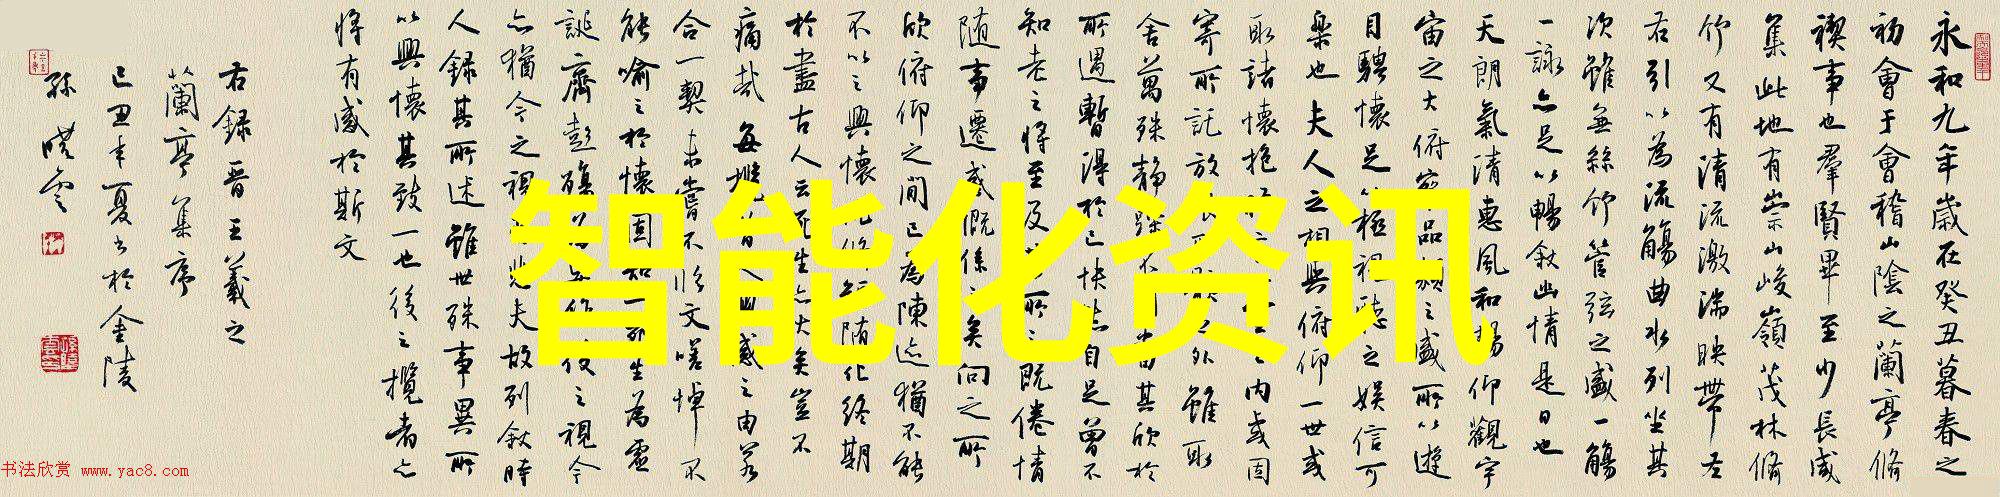 永和九年歲在癸丑暮春之
初會于會稽山陰之蘭亭脩
禊事也羣賢畢至少長咸
集此地有崇山峻嶺茂林脩
竹又有清流激湍映帶左
右引以為流觴曲水列坐其
次雖無絲竹管弦之盛一觴
一詠亦足以暢敘幽情是日也
天朗氣清惠風和暢仰觀宇
宙之大俯察品類之盛所以遊
目騁懷足以極視聽之娛信可
樂也夫人之相與俯仰一世或
取諸懷抱之內或因
寄所託放之外雖取
舍萬殊靜躁不當其欣於
所遇暫得於己快然自足曾不
知老之將至及所之既倦情
隨事遷感慨係之矣向之所
欣俯仰之間已為陳迹猶不能
不以之興懷隨化終期
於盡古人云死生亦大矣豈不
痛哉每攬昔人興感之由若
合一契未嘗不臨文嗟悼不
能喻之於懷固知一死生為虛
誕齊彭殤為妄作後之視今
亦猶今之視悲夫故列敘時
人錄其所述雖世殊事異所
以興懷其致一也後之攬者亦
將有感於斯文
右錄晉王羲之
蘭亭集序
己丑年夏書於金陵
孫曉雲
智能化资讯
书法欣赏 www.yac8.com